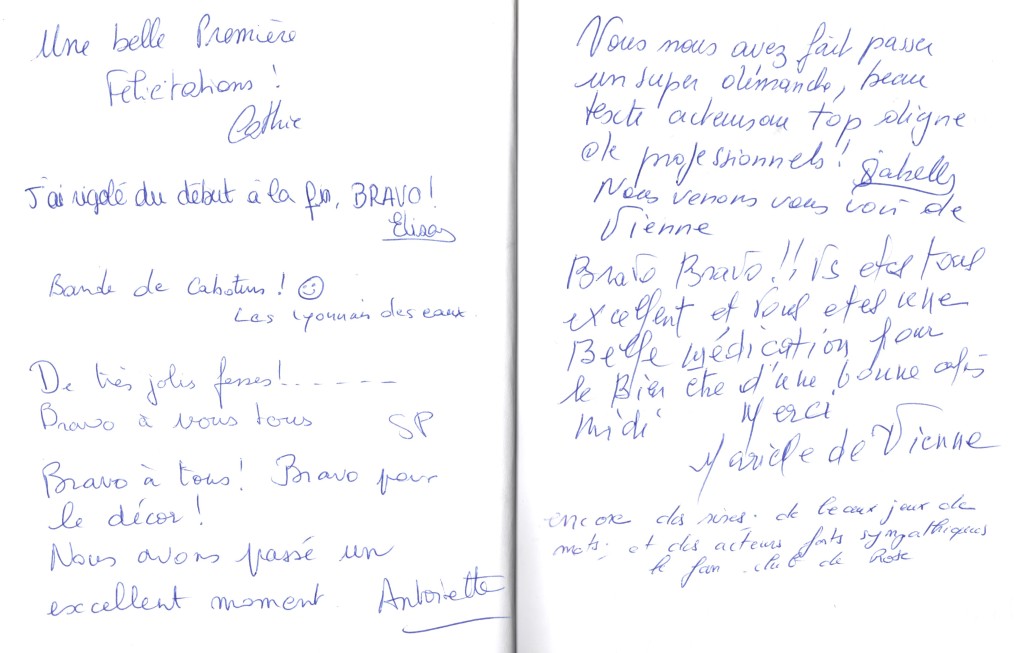 Une belle Première
Félicitations !
Cathie
J'ai rigolé du début à la fin, BRAVO !
Elisa
Bande de Cabotins ! ☺
Les Lyonnais des eaux.
De très jolis fesses !..-----
Bravo à vous tous SP
Bravo à tous ! Bravo pour
le décor !
Nous avons passé un
excellent moment. Antoinette
Vous nous avez fait passer
un super dimanche, beau
texte acteurs au top digne
de professionnels ! Isabelle
Nous venons vous voir de
Vienne
Bravo Bravo !! Vs etes tous
excellent et vous etes une
Belle médication pour
le Bien être d'une bonne après
midi Merci
Marielle de Vienne
encore des rires. de beaux jeux de
mots. et des acteurs forts sympathiques
le fan club de Rose